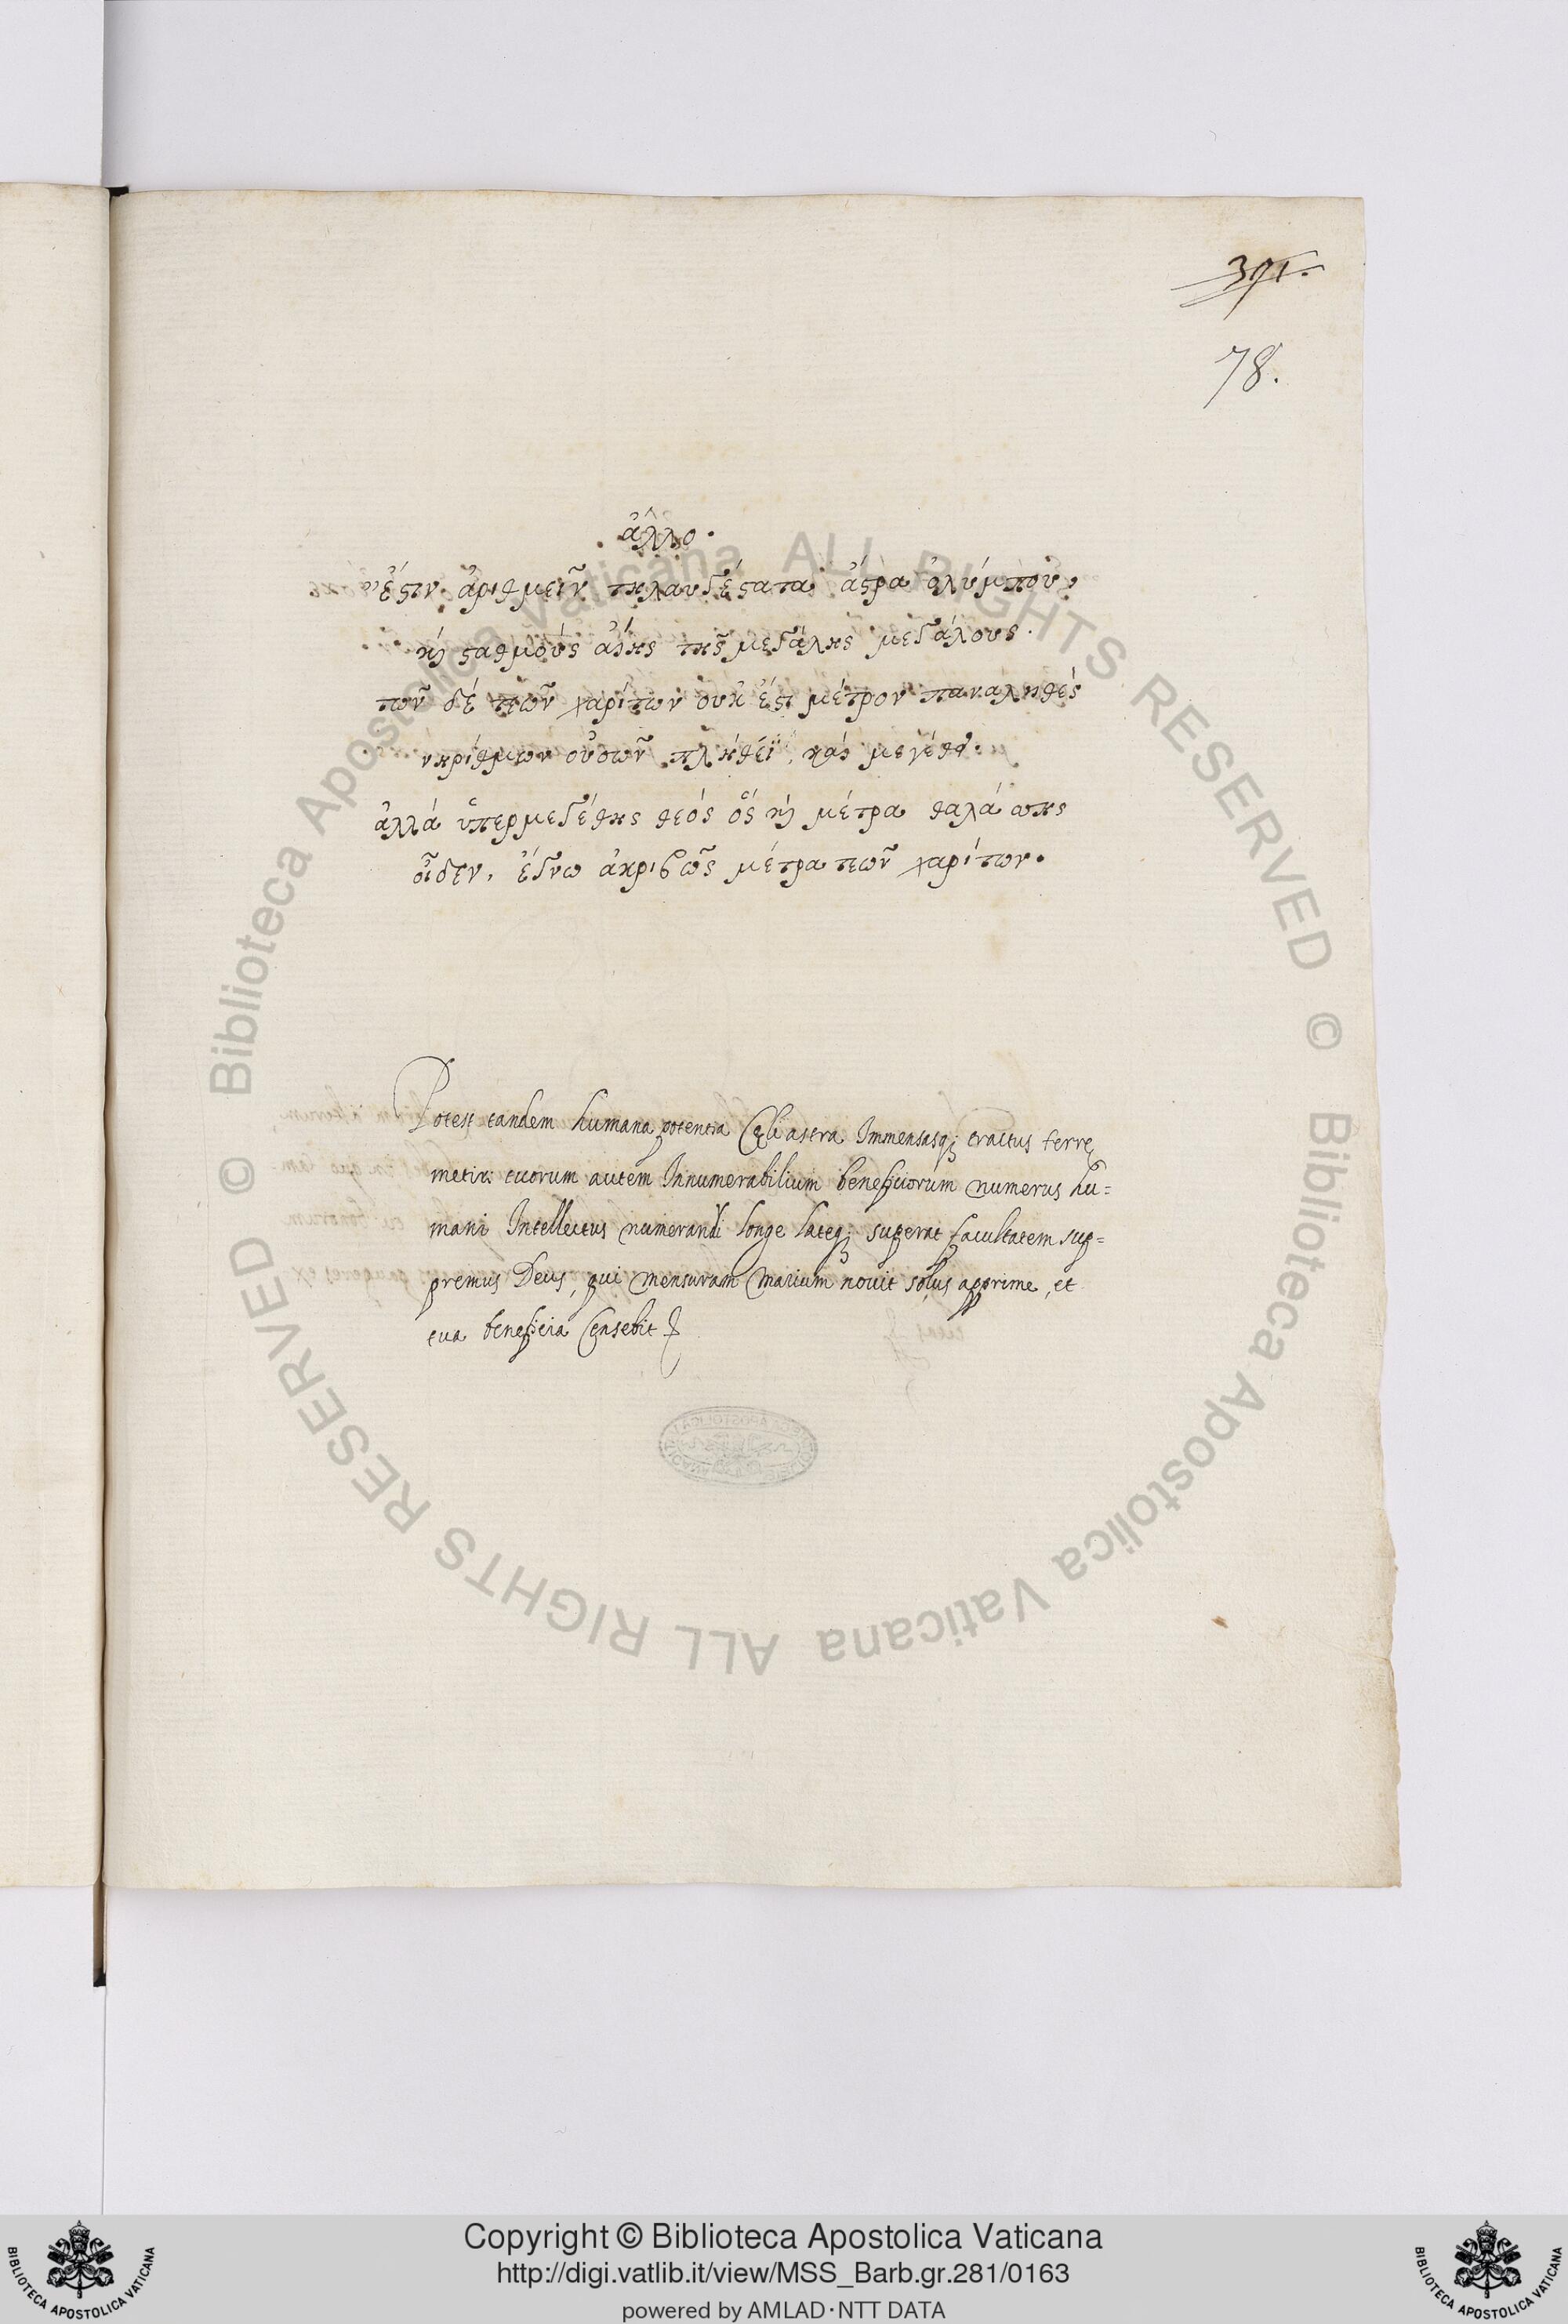 391.
78.
ἄλλο.
ἔστιν ἀριθμεῖν τηλαυγέστατα ἄστρα ὀλύμπου,
καὶ σταθμοὺς αἴης τῆς μεγάλης μεγάλους.
τῶν δέ τεῶν χαρίτων οὐκ ἔστι μέτρον παναληθές
νηρίθμων οὐσῶν πλήθεϊ, καὶ μεγέθει.
ἀλλά ὑπερμεγέθης θεός ὅς καὶ μέτρα θαλάσσης
οἶδεν, ἔγνω ἀκριβῶς μέτρα τεῶν χαρίτων.
Potest tandem humana potentia Cęli astra Immensasq; tractus terrę
metiri tuorum autem Innumerabilium beneficiorum numerus hu=
mani Intellectus numerandi longe lateq; superat facultatem sup=
premus Deus, qui mensuram marium novit solus apprime, et
tua beneficia Censebit
Copyright © Biblioteca Apostolica Vaticana
http://digi.vatlib.it/view/MSS_Barb.gr.281/0163
powered by AMLAD·NTT DATA
BIBLIOTECA APOSTOLICA VATICANA
BIBLIOTECA APOSTOLICA VATICANA
© Biblioteca Apostolica Vaticana ALL RIGHTS RESERVED
© Biblioteca Apostolica Vaticana ALL RIGHTS RESERVED